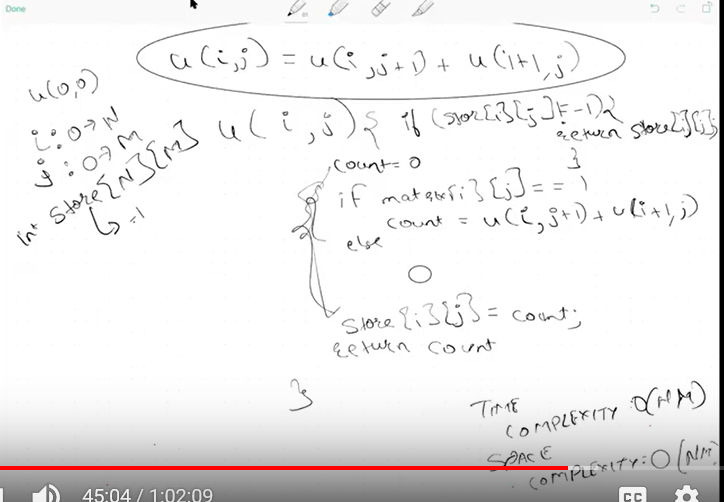 Done
u(i,j) = u(i,j+1) + u(i+1,j)
u(0,0)
i : 0→N
j : 0→M
int Store[N][M]
↳ -1
u(i,j){ if (store[i][j] != -1){
return store[i][j];
}
count = 0
if matrix[i][j] == 1
count = u(i,j+1) + u(i+1,j)
else
0
store[i][j] = count;
return count
}
TIME
COMPLEXITY : O(NM)
SPACE
COMPLEXITY : O(NM)
45:04 / 1:02:09
CC